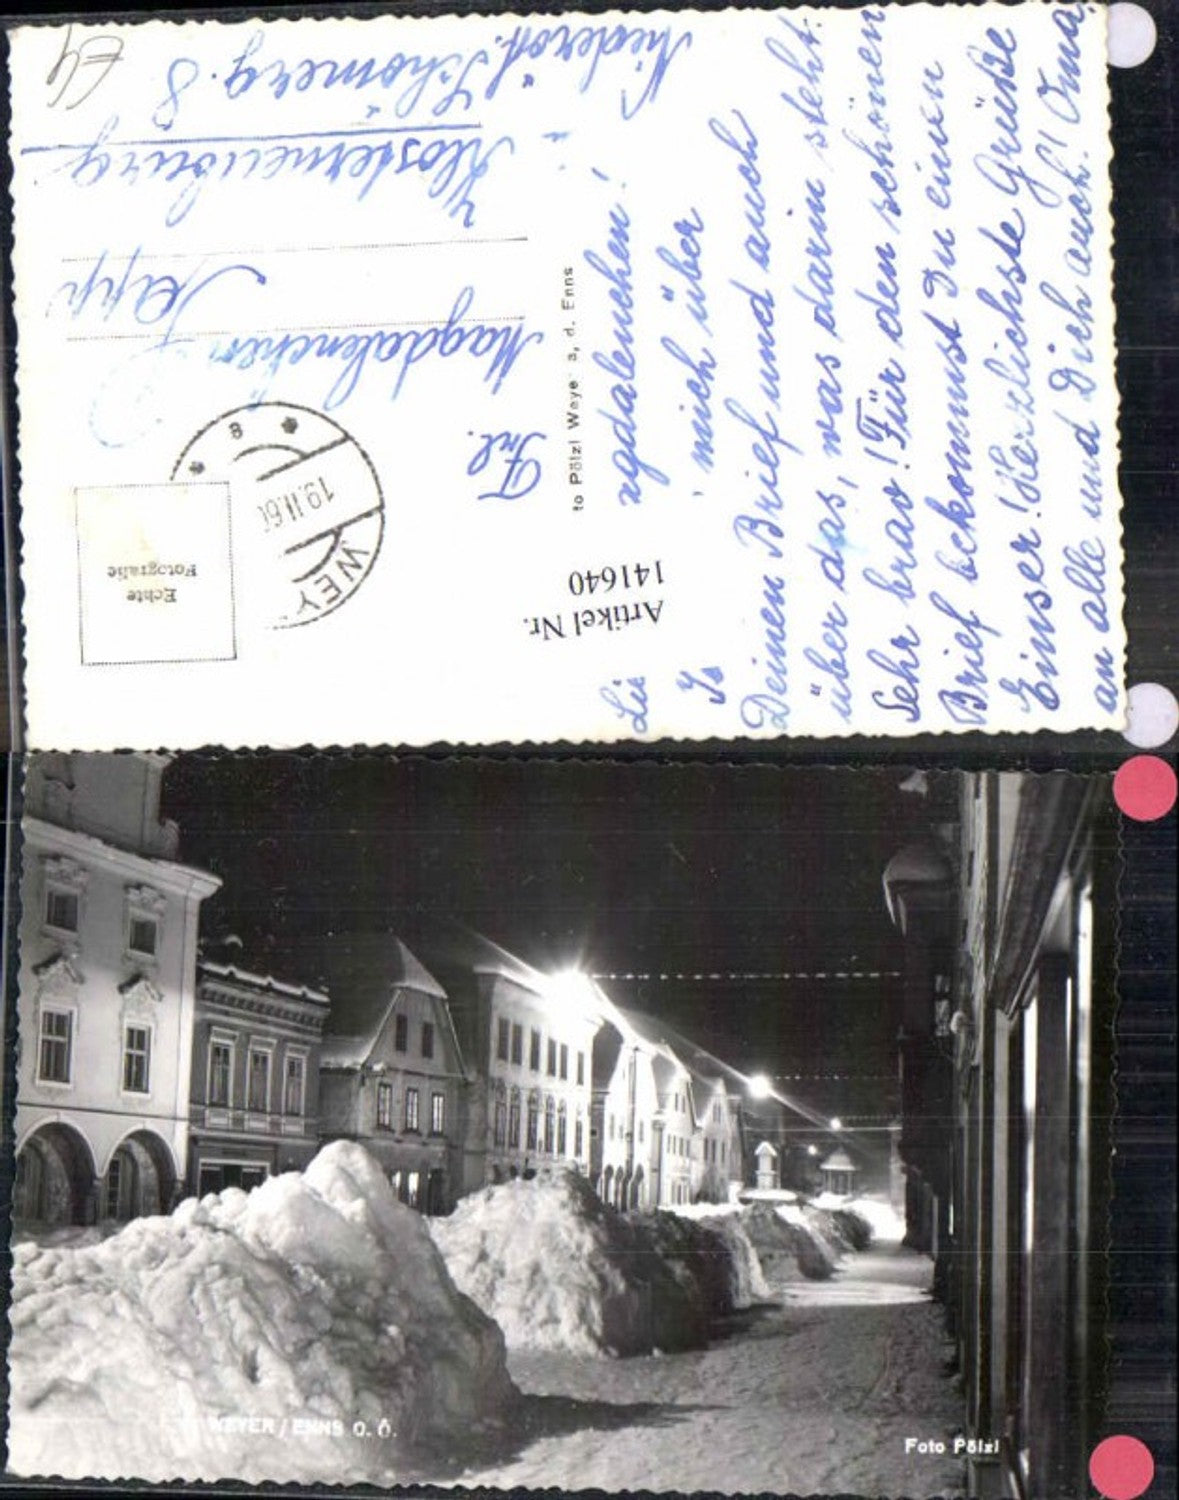 Liebe Magdalenchen!
Is mich über
Deinen Brief und auch
über das, was darin steht.
Sehr brav! Für den schönen
Brief bekommst Du einen
Einser! Herzlichste Grüße
an alle und Dich auch! Oma.
Frl.
Magdalenchen
Papp
Klosterneuburg
Niederöst. Schömerg. 8
to Pölzl Weyer a, d. Enns
Echte
Fotografie
WEY
19.II.6
a
Artikel Nr.
141640
WEYER / ENNS O. Ö.
Foto Pölzl